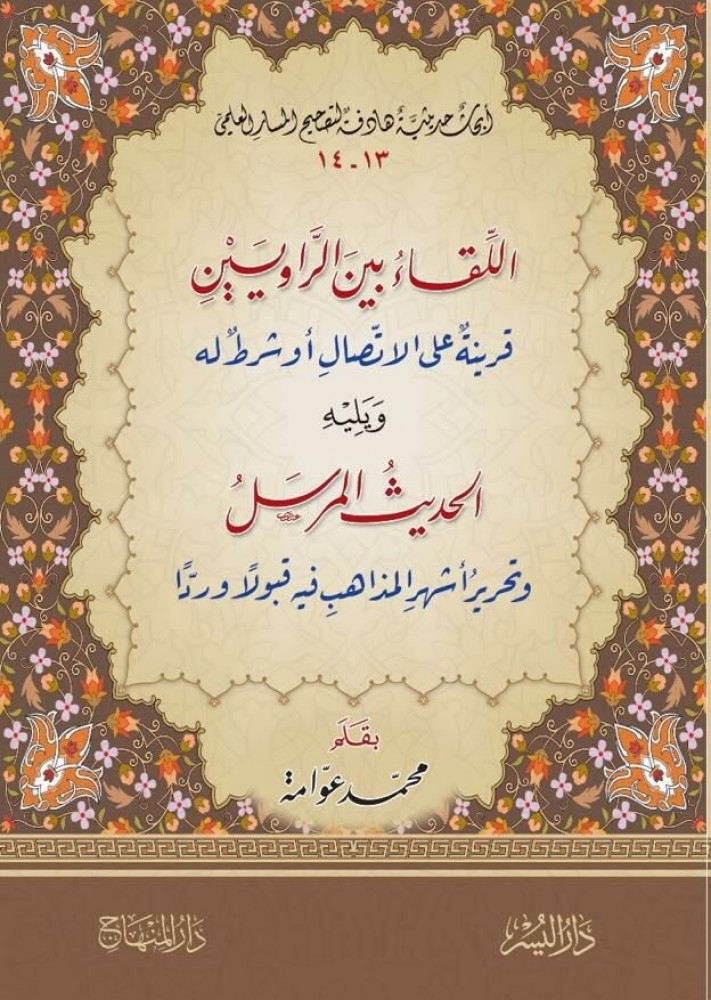 أبحاث حديثيَّةٌ هادفةٌ لتصحيح المسار العلميّ
١٣ - ١٤
اللِّقَاءُ بَينَ الرَّاوِيَيْنِ
قرينةٌ على الاتّصالِ أو شرطٌ له
وَيَلِيْهِ
الحديثُ المرسَلُ
وتحريرُ أشهرِ المذاهبِ فيه قبولًا وردًّا
بقَلَم
محمّد عوّامة
دَارُ اليُسْر
دَارُ المِنْهَاج